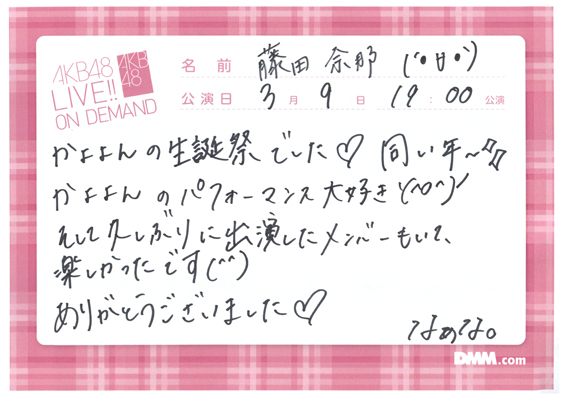 AKB48
LIVE!!
ON DEMAND
AKB
48
名前 藤田 奈那 (・∀・)
公演日 3月 9日 19:00 公演
かよよんの生誕祭でした♡ 同い年〜♪♪
かよよんのパフォーマンス大好き\(^o^)/
そして久しぶりに出演したメンバーもいて、
楽しかったです(^^)
ありがとうございました♡
なぁな。
DMM.com